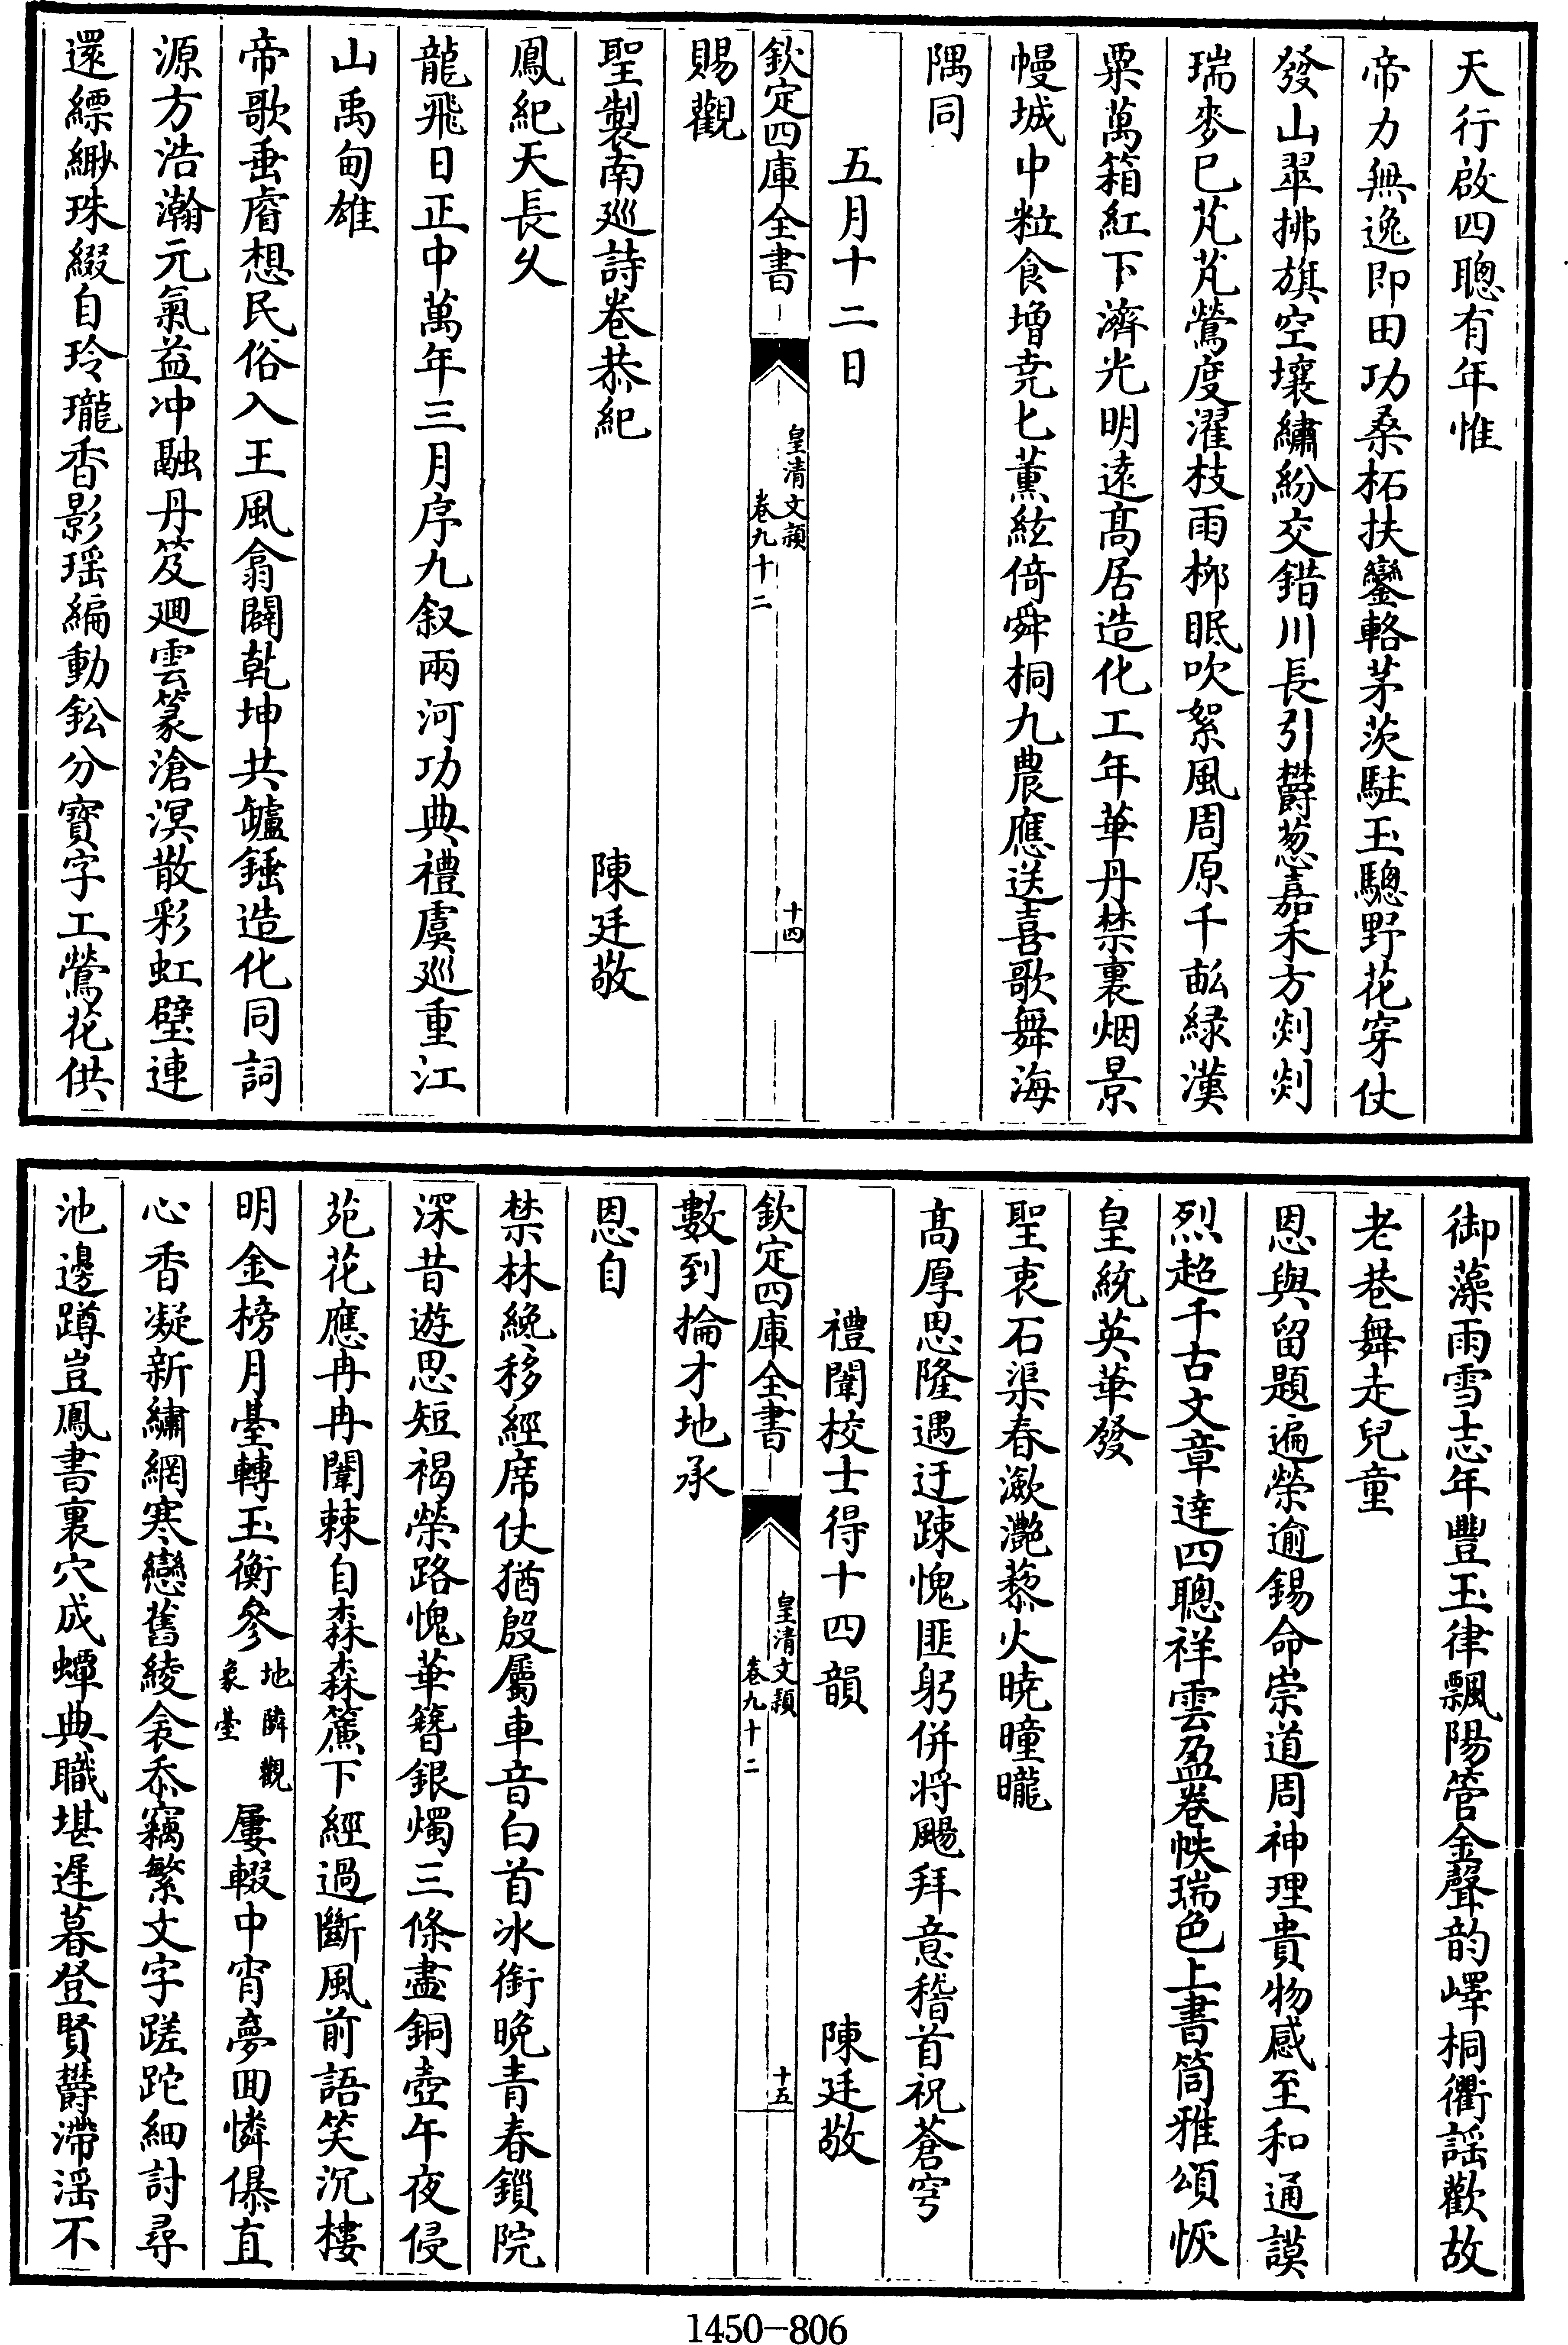 天行啟四聰有年惟
帝力無逸即田功桑柘扶鑾輅茅茨駐玉驄野花穿仗
發山翠拂旗空壤繡紛交錯川長引欝葱嘉禾方剡剡
瑞麥巳芃芃鶯度濯枝雨栁眠吹絮風周原千畝緑漢
粟萬箱紅下濟光明逺髙居造化工年華丹禁裏烟景
幔城中粒食增堯匕薰絃倚舜桐九農應送喜歌舞海
隅同
五月十二日
欽定四庫全書
皇清文頴
卷九十二
十四
賜觀
聖製南廵詩卷恭紀
陳廷敬
鳳紀天長乆
龍飛日正中萬年三月序九叙兩河功典禮虞廵重江
山禹甸雄
帝歌垂睿想民俗入王風翕闢乾坤共鑪錘造化同詞
源方浩瀚元氣益冲融丹笈廻雲篆滄溟散彩虹璧連
還縹緲珠綴自玲瓏香影瑶編動鈆分寳字工鶯花供
御藻雨雪志年豐玉律飄陽管金聲韵嶧桐衢謡歡故
老巷舞走兒童
恩與留題遍榮逾錫命崇道周神理貴物感至和通謨
烈超千古文章達四聰祥雲盈卷帙瑞色上書筒雅頌恢
皇統英華發
聖衷石渠春瀲灔藜火暁曈曨
髙厚思隆遇迂踈愧匪躬併将颺拜意稽首祝蒼穹
禮闈校士得十四韻
陳廷敬
欽定四庫全書
皇清文頴
卷九十二
十五
數到掄才地承
恩自
禁林纔移經席仗猶殷屬車音白首冰銜晚青春鎻院
深昔遊思短褐榮路愧華簪銀燭三條盡銅壺午夜侵
苑花應冉冉闈棘自森森簾下經過斷風前語笑沉樓
明金榜月臺轉玉衡參地隣觀象臺屢輟中宵夢囬憐儤直
心香凝新繡網寒戀舊綾衾忝竊繁文字蹉跎細討尋
池邊蹲豈鳳書裏穴成蟫典職堪遲暮登賢欝滯淫不
1450-806